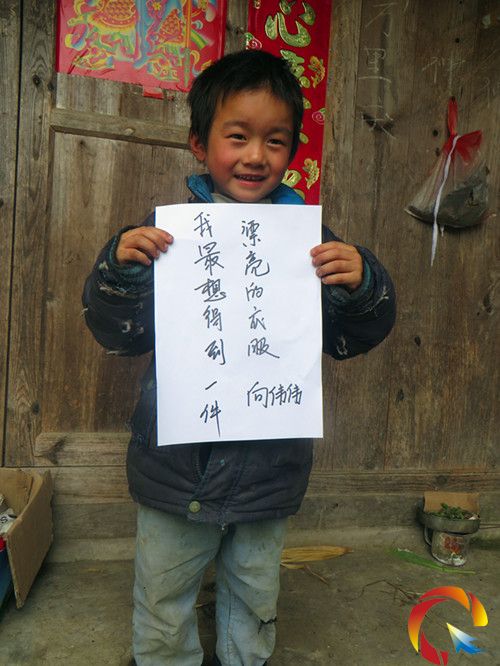 我最想得到一件
漂亮的衣服 向伟伟
心